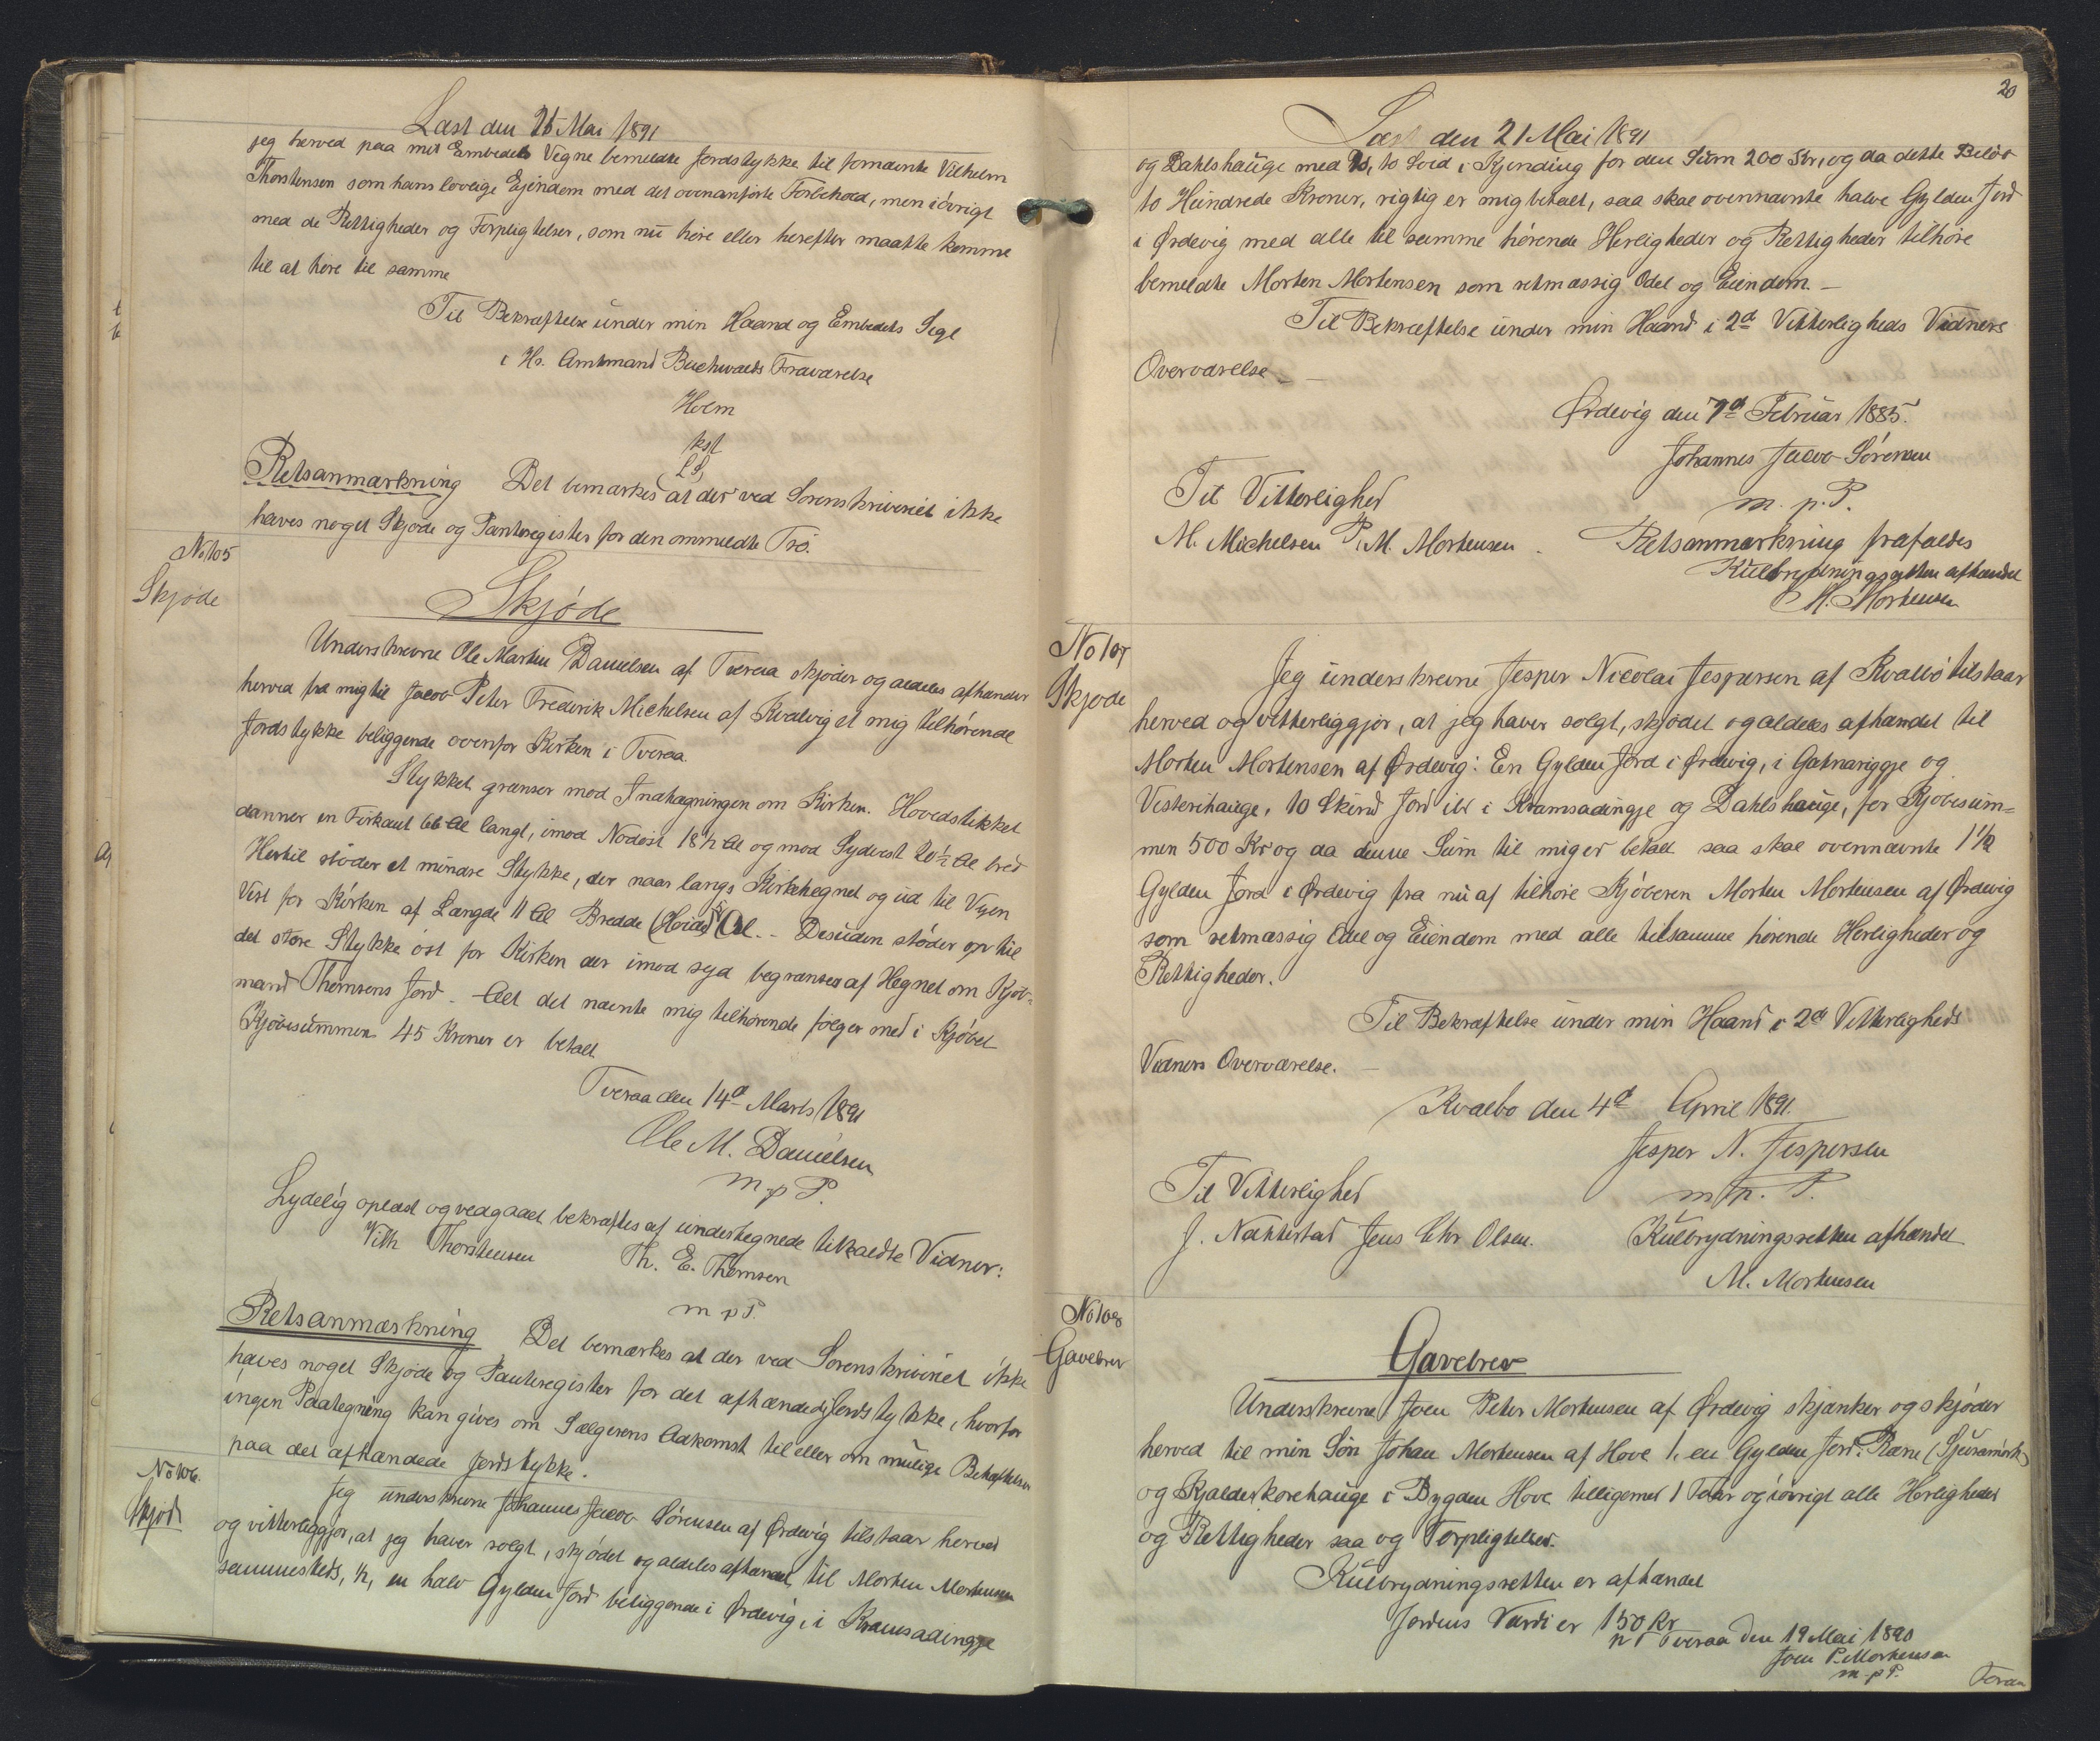 Læst den 21 Mai 1891
jeg herved paa mit Embedets Vegne bemeldte Jordstykke til fornævnte Vilhelm
Thorstensen som hans lovlige Ejendom med det ovenanførte Forbehold, men iøvrigt
med de Rettigheder og Forpligtelser, som nu høre eller herefter maatte komme
til at høre til samme
Til Bekræftelse under min Haand og Embedets Segl
i Hr. Amtmand Buchwaldts Fraværelse
Holm
kst
(LS)
Retsanmærkning Det bemærkes at der ved Sorenskriveriet ikke
haves noget Skjøde og Panteregister for den ommeldte Trø.
No 105
Skjøde
Skjøde
Underskrevne Ole Morten Danielsen af Tveraa skjøder og aldeles afhænder
herved fra mig til Jacob Peter Frederik Michelsen af Kvalvig et mig tilhørende
Jordstykke beliggende ovenfor Kirken i Tveraa.
Stykket grænser mod Indhegningen om Kirken. Hovedstikket
danner en Firkant 66 Al langt, imod Nodøst 18½ Al og mod Sydvest 20½ Al bred
Hertil støder et mindre Stykke, der naar langs Kirkehegnet og ud til Vejen
Vest for Kirken af Længde 11 Al Bredde (Høide) Al. - Desuden støder op til
det store Stykke øst for Kirken der imod syd begrænses af Hegnet om Kjøb-
mand Thomsens Jord. - Alt det nævnte mig tilhørende følger med i Kjøbet
Kjøbesummen 45 Kroner er betalt.
Tveraa den 14d Marts 1891
Ole M. Danielsen
m. p. P.
Lydelig oplæst og vedgaaet bekræftes af undertegnede tilkaldte Vidner:
Vilh Thorstensen Th. E. Thomsen
m p P.
Retsanmærkning Det bemærkes at der ved Sorenskriveriet ikke
haves noget Skjøde og Panteregister for det afhændede Jordstykke, hvorfor
ingen Paategning kan gives om Sælgerens Adkomst til eller om mulige Behæftelser
paa det afhændede Jordstykke.
No 106.
Skjøde
Jeg underskrevne Johannes Jacob Sørensen af Ørdevig tilstaar herved
og vitterliggjør, at jeg haver solgt, skjødet og aldeles afhændet til Morten Mortensen
sammesteds, ½, en halv Gylden Jord beliggende i Ørdevig, i Kramsadingje
20
Læst den 21 Mai 1891
og Dahlshauge med 10, to Lod i Kjending for den Sum 200 Kr, og da dette Beløb
to Hundrede Kroner, rigtig er mig betalt, saa skal ovennævnte halve Gylden Jord
i Ørdevig med alle til samme hørende Herligheder og Rettigheder tilhøre
bemeldte Morten Mortensen som retmæssig Odel og Eiendom. -
Til Bekræftelse under min Haand i 2d Vitterligheds Vidners
Overværelse. -
Ørdevig den 7d Februar 1885.
Johannes Jacob Sørensen
m. p. P.
Til Vitterlighed
M. Michelsen P. M. Mortensen.
Retsanmærkning frafaldes
Kulbrydningsretten afhændet
M. Mortensen
No 107
Skjøde
Jeg underskrevne Jesper Nicolai Jespersen af Kvalbø tilstaar
herved og vitterliggjør, at jeg haver solgt, skjødet og aldeles afhændet til
Morten Mortensen af Ørdevig: En Gylden Jord i Ørdevig, i Gatnariggje og
Vesterihauge, 10 Skind Jord ibd i Kramsadingje og Dahlshauge, for Kjøbesum-
men 500 Kr og da denne Sum til mig er betalt saa skal ovennævnte 1½
Gylden Jord i Ørdevig fra nu af tilhøre Kjøberen Morten Mortensen af Ørdevig
som retmæssig Odel og Eiendom med alle tilsamme hørende Herligheder og
Rettigheder.
Til Bekræftelse under min Haand i 2d Vitterligheds
Vidners Overværelse. -
Kvalbø den 4d April 1891.
Jesper N. Jespersen
m. p. P.
Til Vitterlighed
J. Nakkestad Jens Chr Olsen.
Kulbrydningsretten afhændet
M. Mortensen
No 108
Gavebrev
Gavebrev
Underskrevne Joen Peter Mortensen af Ørdevig skjænker og skjøder
herved til min Søn Johan Mortensen af Hove 1, en Gylden Jord i Ræne (Sjúramørk)
og Kjalderskorehauge i Bygden Hove tilligemed 1 Faar og iøvrigt alle Herligheder
og Rettigheder saa og Forpligtelser.
Kulbrydningsretten er afhændet
Jordens Værdi er 150 Kr
p. t. Tveraa den 19 Mai 1890
Joen P. Mortensen
m. p. P.
Foran